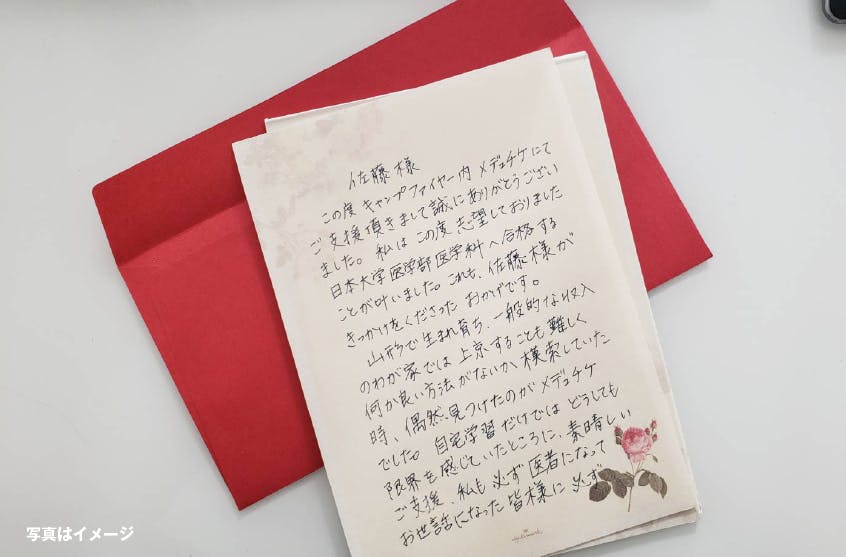 佐藤様
この度キャンプファイヤー内メデュチケにて
ご支援頂きまして誠にありがとうござい
ました。私はこの度志望しておりました
日本大学医学部医学科へ合格する
ことが叶いました。これも、佐藤様が
きっかけをくださったおかげです。
山形で生まれ育ち、一般的な収入
のわが家では上京することも難しく
何か良い方法がないか、模索していた
時、偶然見つけたのがメデュチケ
でした。自宅学習だけではどうしても
限界を感じていたところに、素晴しい
ご支援、私も必ず医者になって
お世話になった皆様に必ず
Hallmark
写真はイメージ